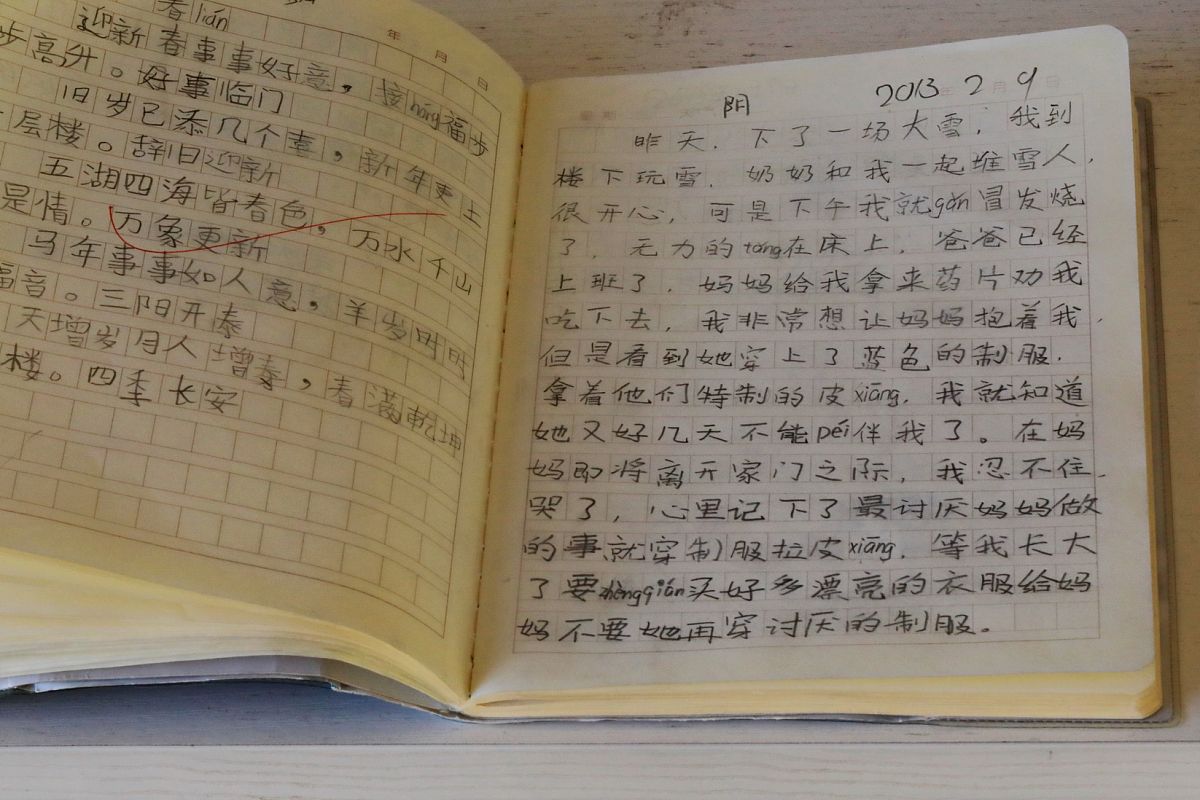 春lián
年 月 日
迎新春事事好意，接nàng福步
步高升。好事临门
旧岁已添几个喜，新年更上
一层楼。辞旧迎新
五湖四海皆春色，万水千山
是情。万象更新
马年事事如人意，羊岁时时
福音。三阳开泰
天增岁月人增寿，春满乾坤
楼。四季长安
阴 2013 年 2 月 9 日
昨天，下了一场大雪，我到
楼下玩雪，奶奶和我一起堆雪人，
很开心，可是下午我就gǎn冒发烧
了，无力的tǎng在床上，爸爸已经
上班了，妈妈给我拿来药片劝我
吃下去，我非常想让妈妈抱着我，
但是看到她穿上了蓝色的制服，
拿着他们特制的皮xiāng，我就知道
她又好几天不能péi伴我了。在妈
妈即将离开家门之际，我忍不住
哭了，心里记下了最讨厌妈妈做
的事就穿制服拉皮xiāng，等我长大
了要zhèngqián买好多漂亮的衣服给妈
妈不要她再穿讨厌的制服。